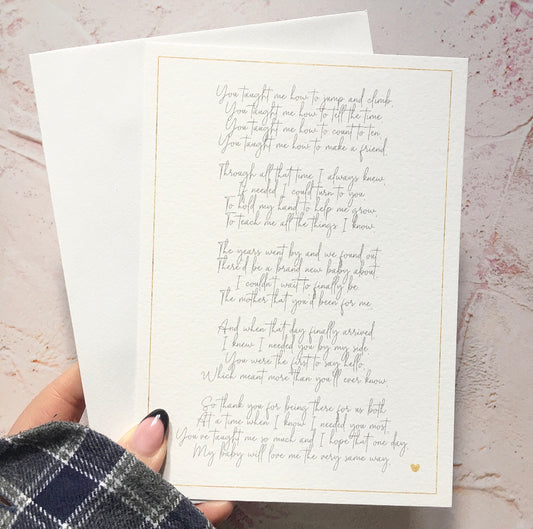 You taught me how to jump and climb,
You taught me how to tell the time
You taught me how to count to ten,
You taught me how to make a friend.
Through all that time I always knew,
If needed I could turn to you
To hold my hand to help me grow,
To teach me all the things I know
The years went by and we found out
There'd be a brand new baby about
I couldn't wait to finally be
The mother that you'd been for me
And when that day finally arrived
I knew I needed you by my side
You were the first to say hello,
Which meant more than you'll ever know
So thank you for being there for us both
At a time when I know I needed you most,
You've taught me so much and I hope that one day,
My baby will love me the very same way